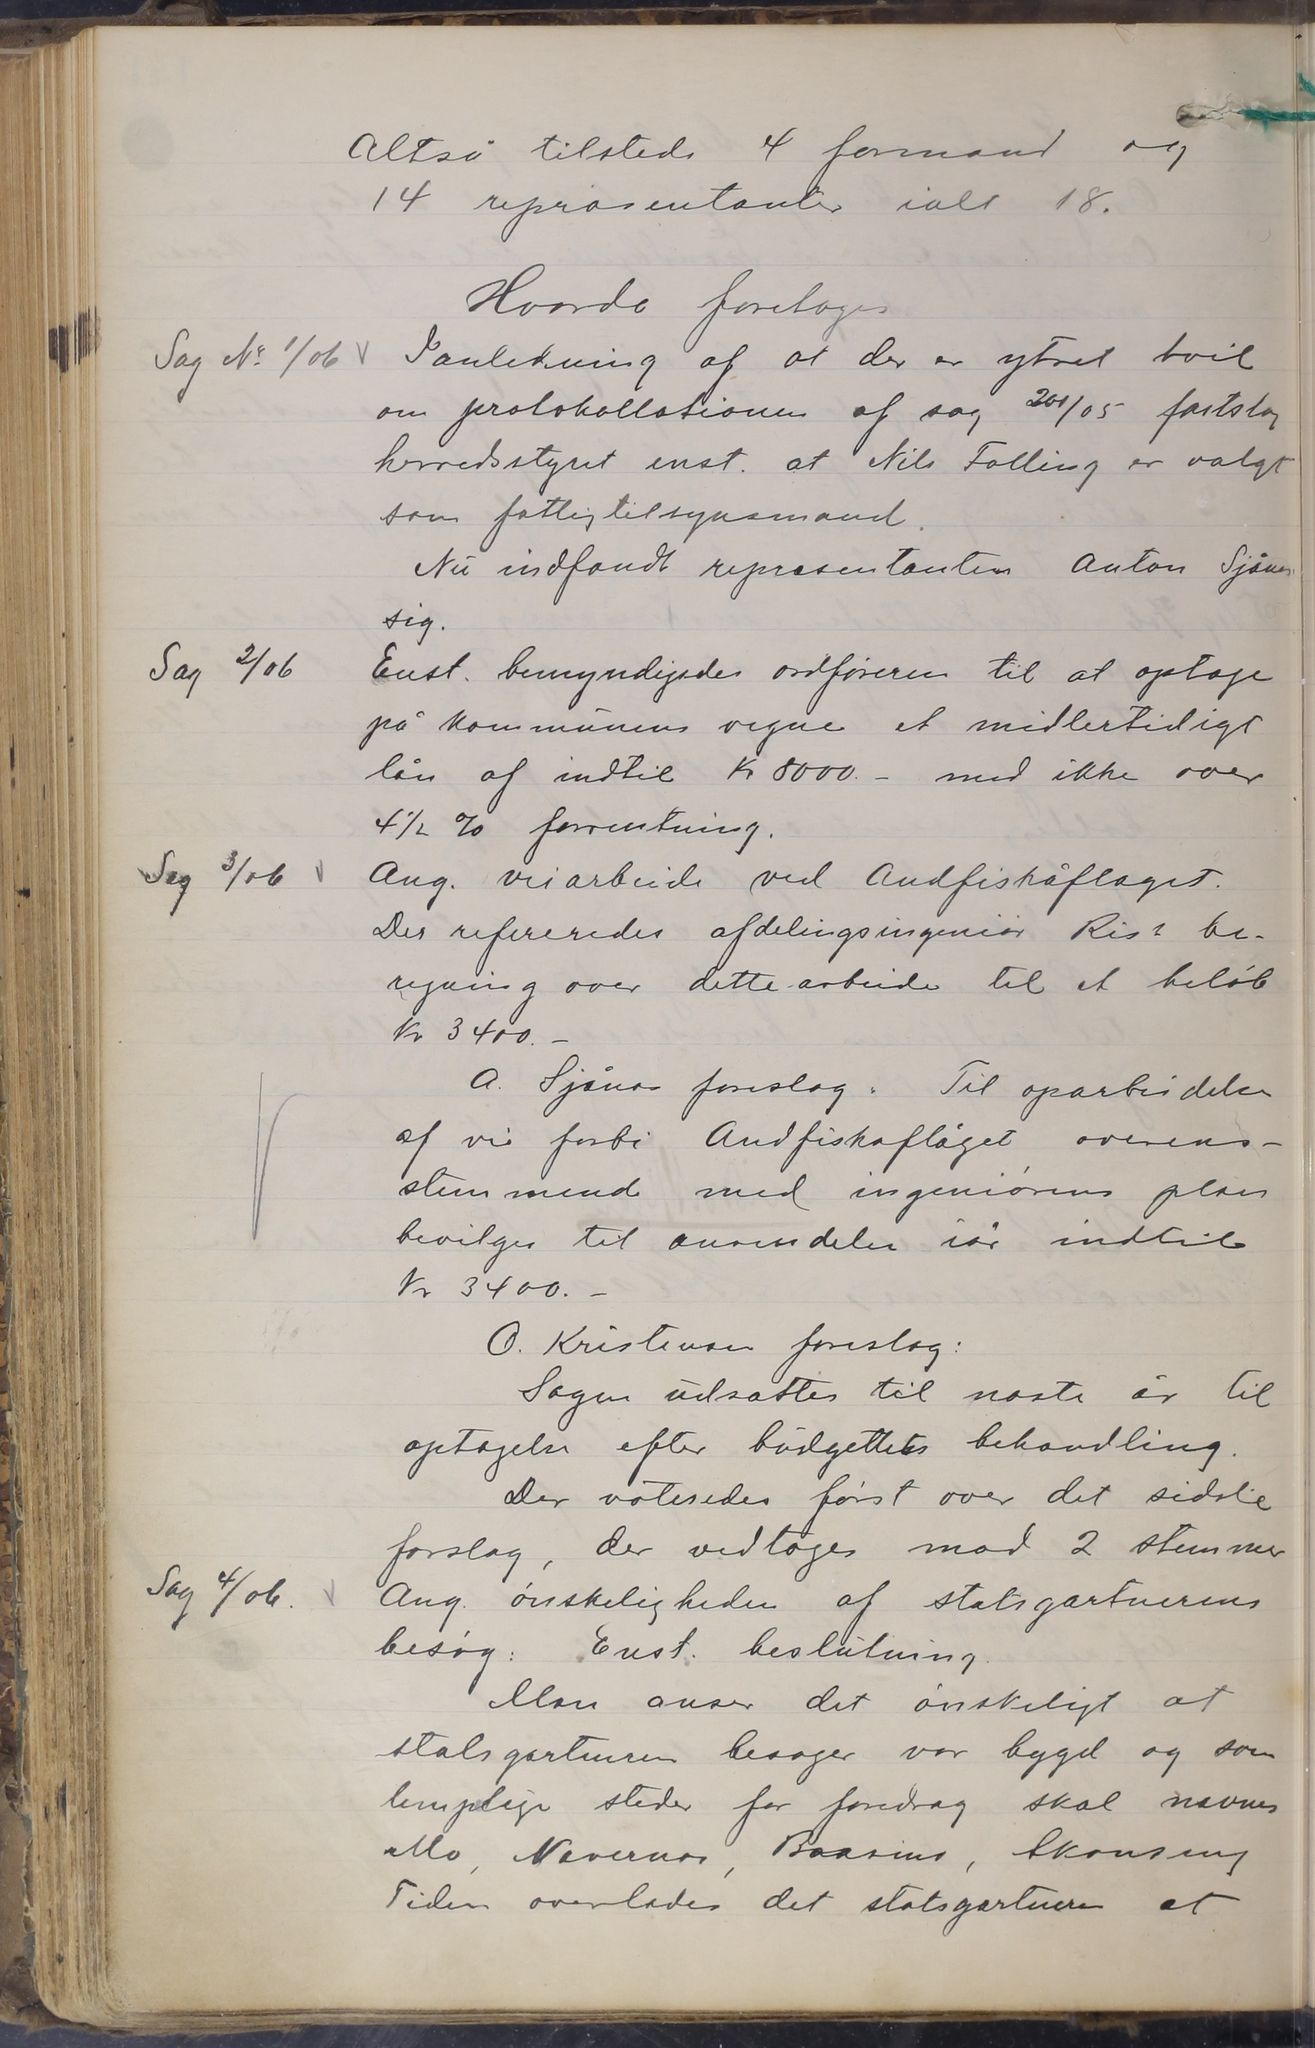 Altså tilstede 4 formænd og
14 repræsentanter ialt 18.
Hvorda foretoges
Sag No 1/06 I anledning af at der er ytret tvil
om protokollationen af sag 201/05 fastslog
herredsstyret enst. at Nils Folling er valgt
som fattigtilsynsmand.
Nu indfandt representanten Anton Sjånes
sig.
Sag 2/06 Enst. bemyndigedes ordføreren til at optage
på kommunens vegne et midlertidigt
lån af indtil Kr 8000.- med ikke over
4½ % forrentning.
Sag 3/06 Ang. veiarbeide ved Andfiskåflaget.
Der refereredes afdelingsingeniør Ris's be-
regning over dette arbeide til et beløb
Kr 3400.-
A. Sjånes foreslog: Til oparbeidelse
af vei forbi Andfiskaflåget overens-
stemmende med ingeniørens plan
bevilges til anvendelse iår indtil
Kr 3400.-
O. Kristensen foreslog:
Sagen udsættes til næste år til
optagelse efter budgettets behandling.
Der voteredes først over det sidste
forslag, der vedtoges mod 2 stemmer
Sag 4/06. Ang. ønskeligheden af statsgartnerens
besøg: Enst. beslutning.
Man anser det ønskeligt at
statsgartneren besøger vor bygd og som
lempelige steder for foredrag skal nævnes
Mo, Nævernes, Baasmo, Skonseng
Tiden overlades det statsgartneren at